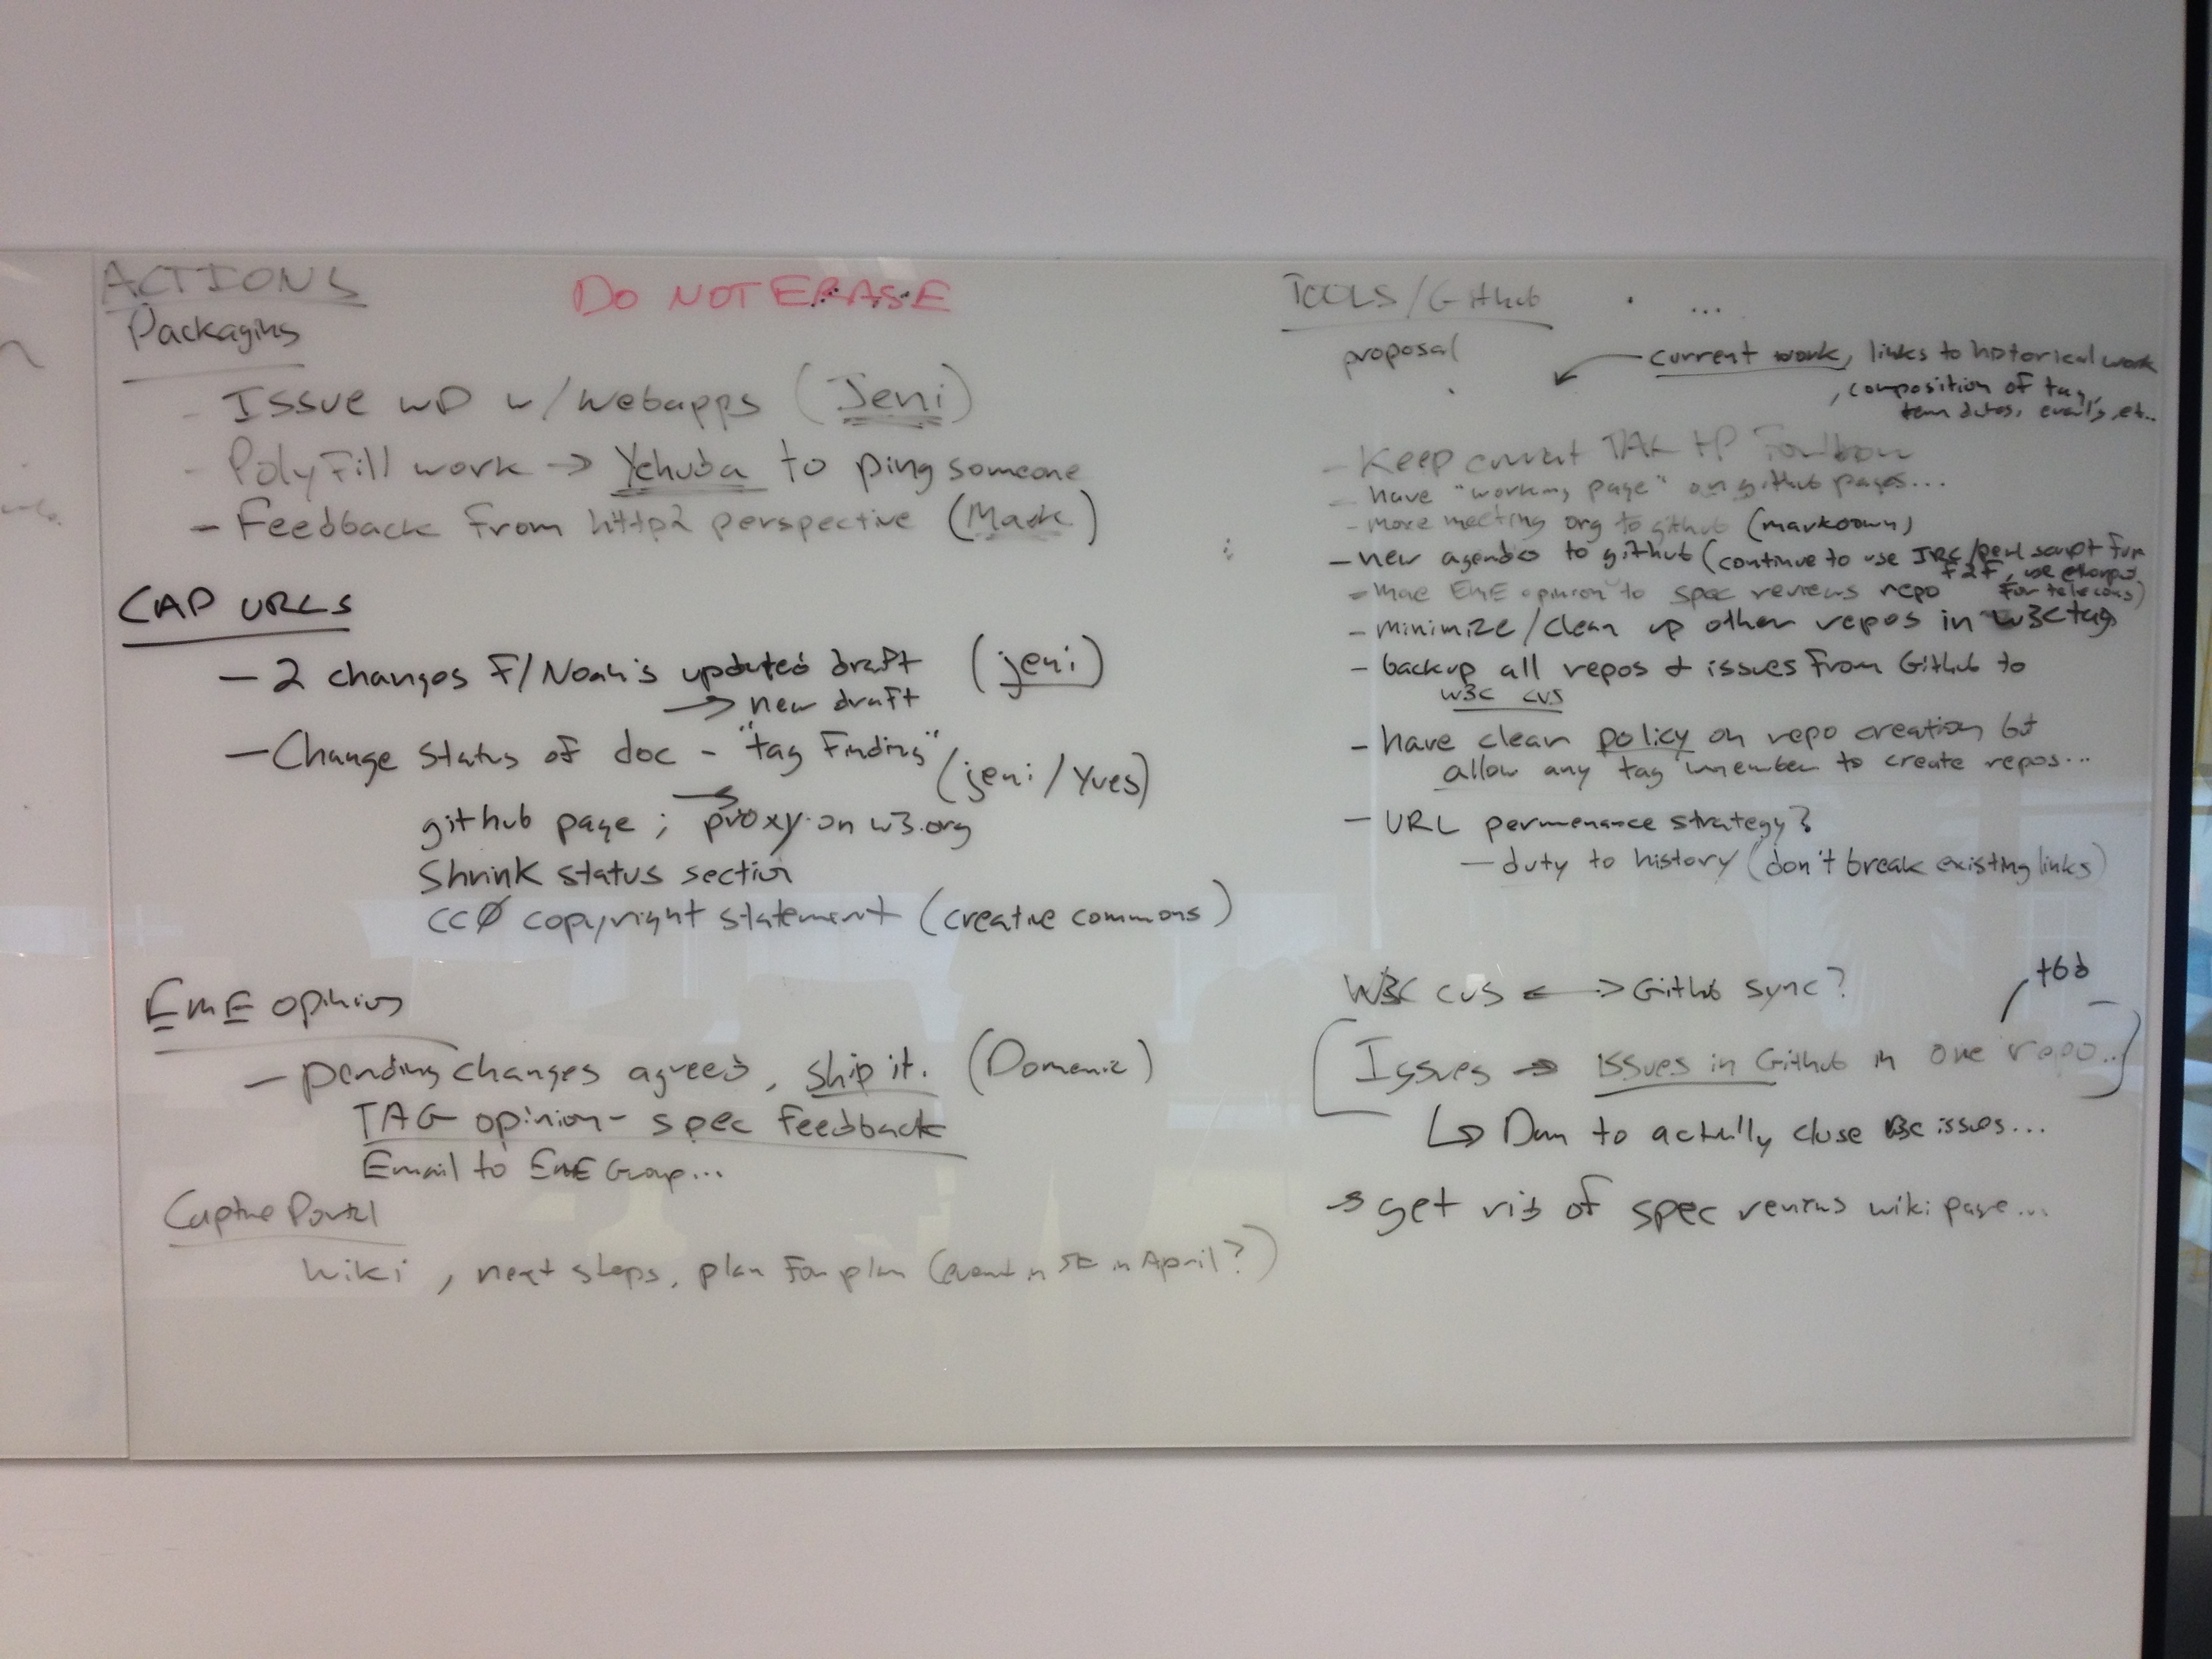 ACTIONS
DO NOT ERASE
Packaging
- Issue WD w/webapps (Jeni)
- PolyFill work → Yehuda to ping someone
- Feedback from http2 perspective (Mark)
CAP URLS
- 2 changes F/Noah's updated draft (jeni)
→ new draft
- Change status of doc - "tag Finding" (jeni/Yves)
→
github page; proxy on w3.org
Shrink status section
CCØ copyright statement (creative commons)
EME opinion
- pending changes agreed, ship it. (Domenic)
TAG opinion - spec feedback
Email to EME Group...
Captive Portal
wiki, next steps, plan for plan (event in in April?)
TOOLS/Github
...
proposal
current work, links to historical work
, composition of tag,
term dates, emails, etc..
- Keep current TAG HP
- have "working page" on github pages...
- move meeting org to github (markdown)
- new agendas to github (continue to use IRC/perl script for
F2F, use
for telecons)
- move EME opinion to spec reviews repo
- minimize/clean up other repos in w3ctag
- backup all repos & issues from Github to
w3c cvs
- have clear policy on repo creation but
allow any tag member to create repos...
- URL permenance strategy?
- duty to history (don't break existing links)
W3C CVS ⟷ Github sync?
tbd
[Issues → issues in Github in one repo..]
↳ Dan to actually close w3c issues...
→ get rid of spec reviews wiki page...